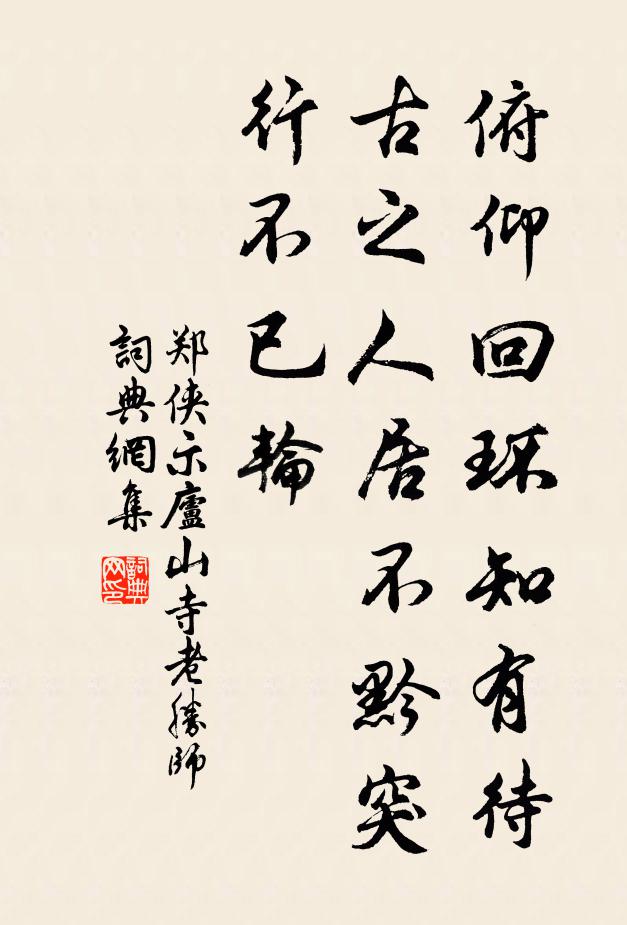 俯仰回环知有待
古之人居不黔突
行不已輪
郑侠示廬山寺老勝師
詞典網集
詞典网印